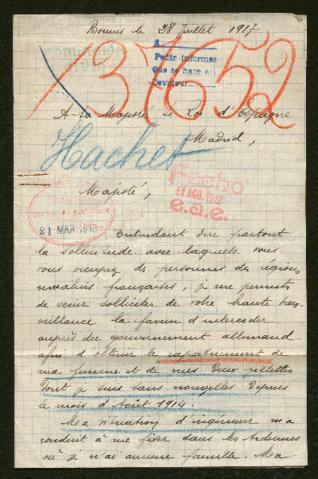 Bonnes le 28 Juillet 1917
A
Pedir informes
que se hace en
137652
A Sa Majesté Le Roi d'Espagne
Madrid,
Hachet
Majesté,
Hecho
11 AGO. 1917
e.a.e.
31 MAR 191
Entendant dire partout
la sollicitude avec laquelle vous
vous occupez des personnes des régions
envahies françaises, je me permets
de venir solliciter de votre haute bien
veillance la faveur d'intercéder
auprès du gouvernement allemand
afin d'obtenir le rapatriement de
ma femme et de mes deux fillettes
dont je suis sans nouvelles depuis
le mois d'Août 1914.
Ma situation d'ingénieur m'a
conduit à me fixer dans les Ardennes
où je n'ai aucune famille. Ma